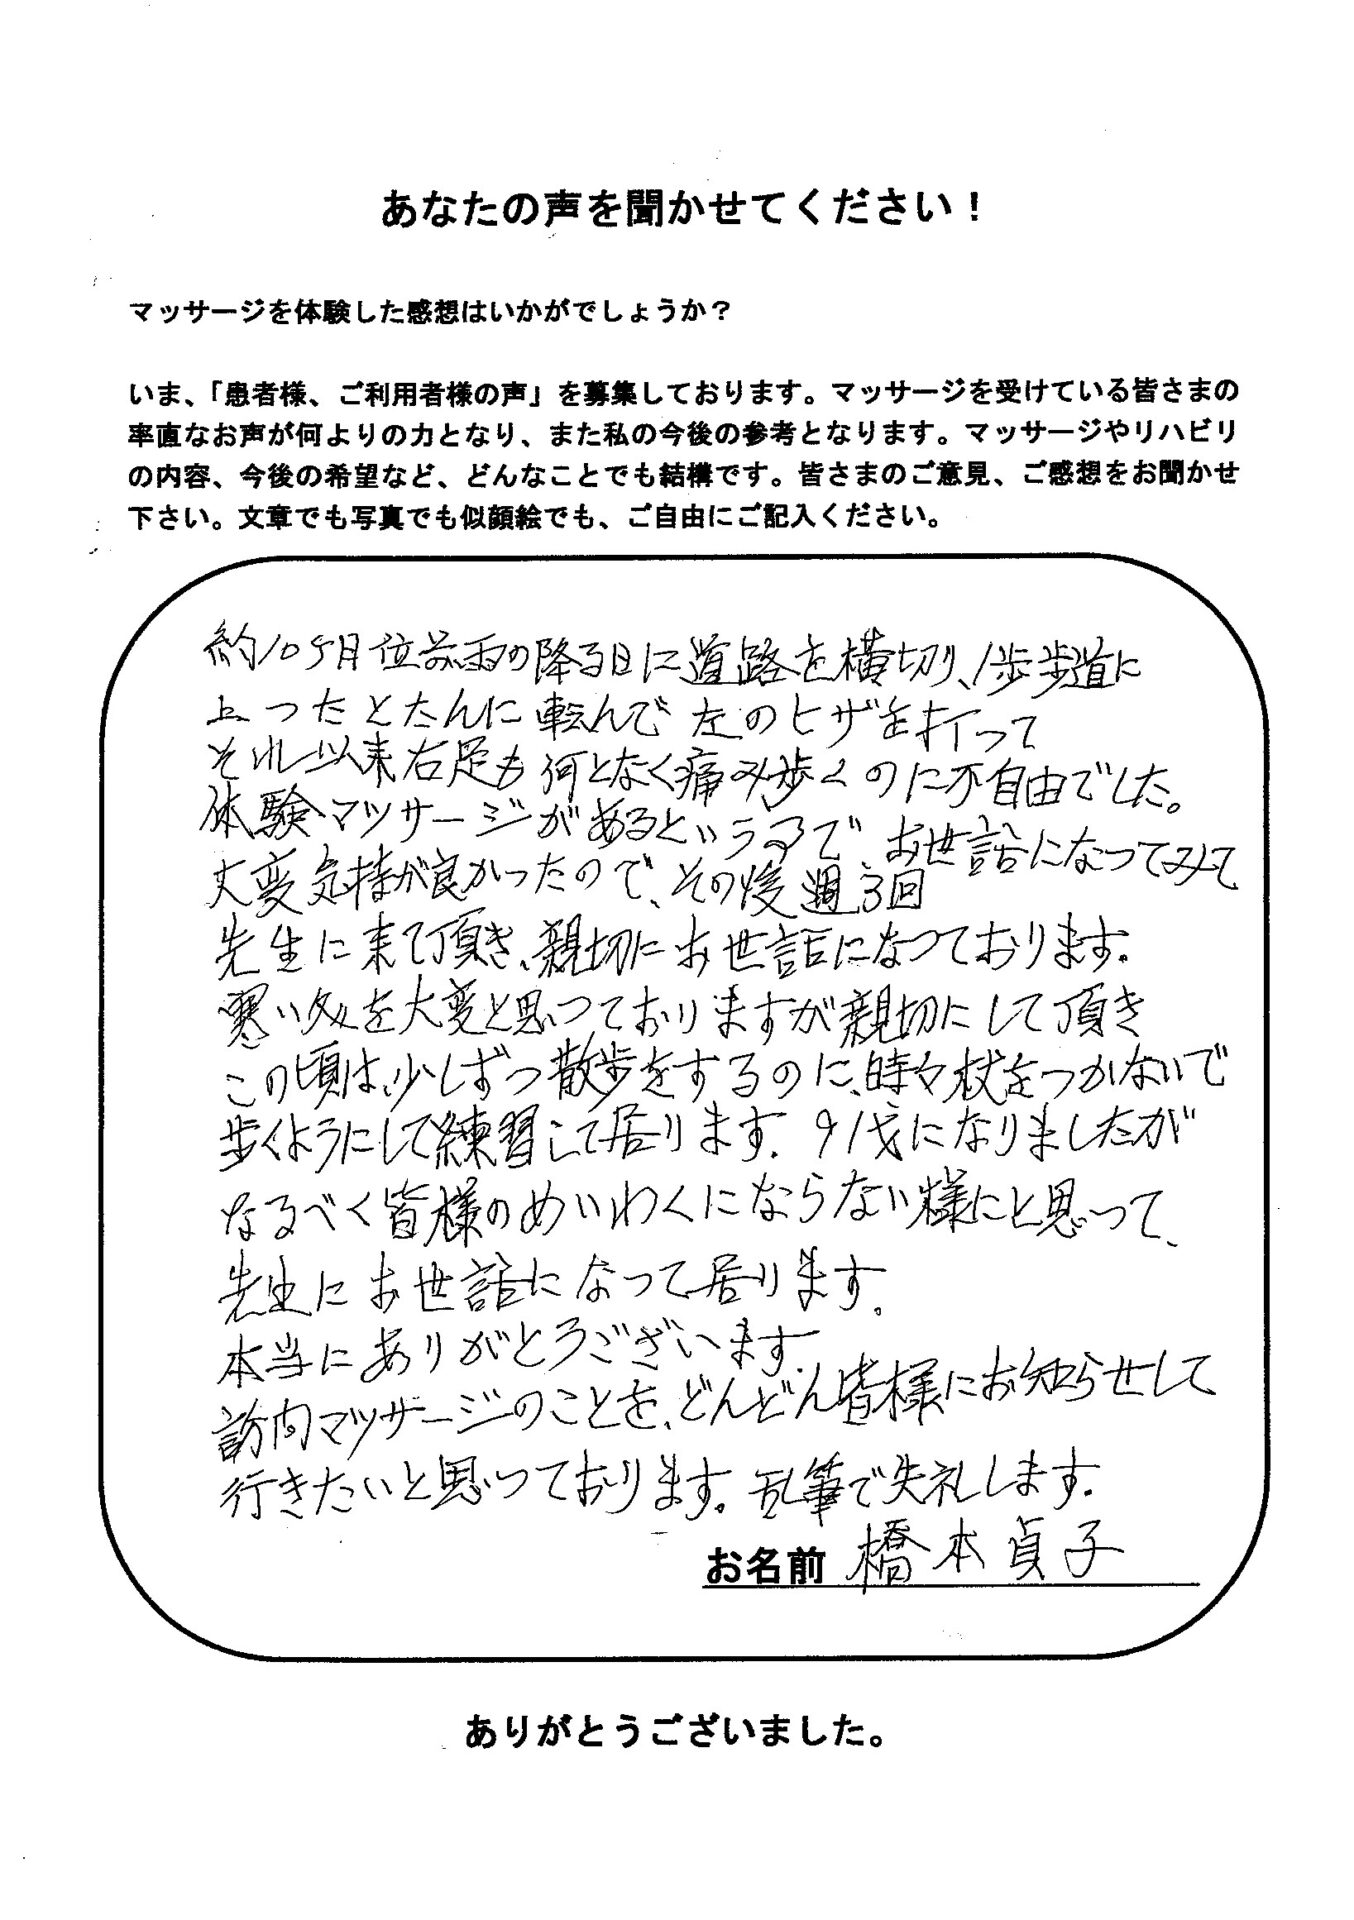 あなたの声を聞かせてください！
マッサージを体験した感想はいかがでしょうか？
いま、「患者様、ご利用者様の声」を募集しております。マッサージを受けている皆さまの
率直なお声が何よりの力となり、また私の今後の参考となります。マッサージやリハビリ
の内容、今後の希望など、どんなことでも結構です。皆さまのご意見、ご感想をお聞かせ
下さい。文章でも写真でも似顔絵でも、ご自由にご記入ください。
約10ヶ月位前雨の降る日に道路を横切り、1歩歩道に
上ったとたんに転んで左のヒザを打って
それ以来右足も何となく痛み歩くのに不自由でした。
体験マッサージがあるというので、お世話になってみて
大変気持が良かったので、その後週3回
先生に来て頂き、親切にお世話になっております。
寒い冬を大変と思っておりますが親切にして頂き
この頃は、少しずつ散歩をするのに、時々杖をつかないで
歩くようにして練習して居ります。91才になりましたが
なるべく皆様のめいわくにならない様にと思って、
先生にお世話になって居ります。
本当にありがとうございます。
訪問マッサージのことを、どんどん皆様にお知らせして
行きたいと思っております。乱筆で失礼します。
お名前 橋本貞子
ありがとうございました。